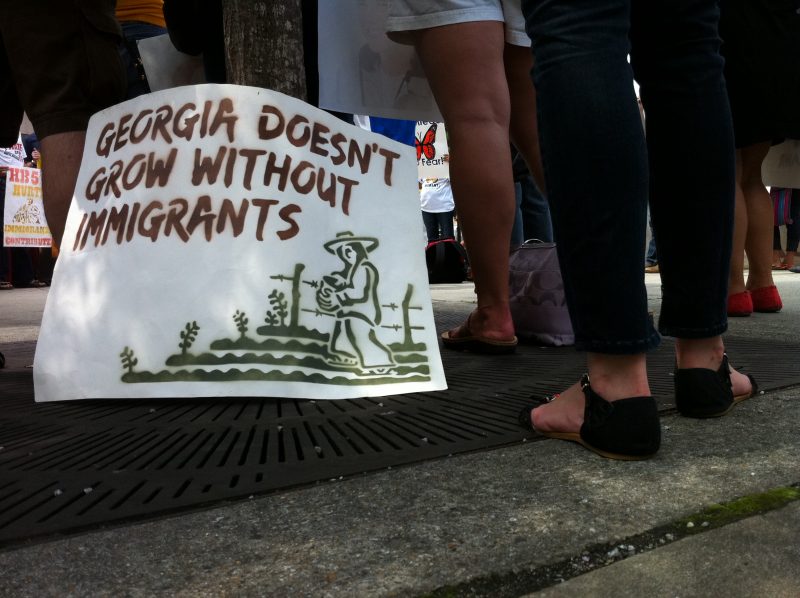 GEORGIA DOESN'T
GROW WITHOUT
IMMIGRANTS
HURT
IMMIGRANTS
CONTRIBUTE
Fear!